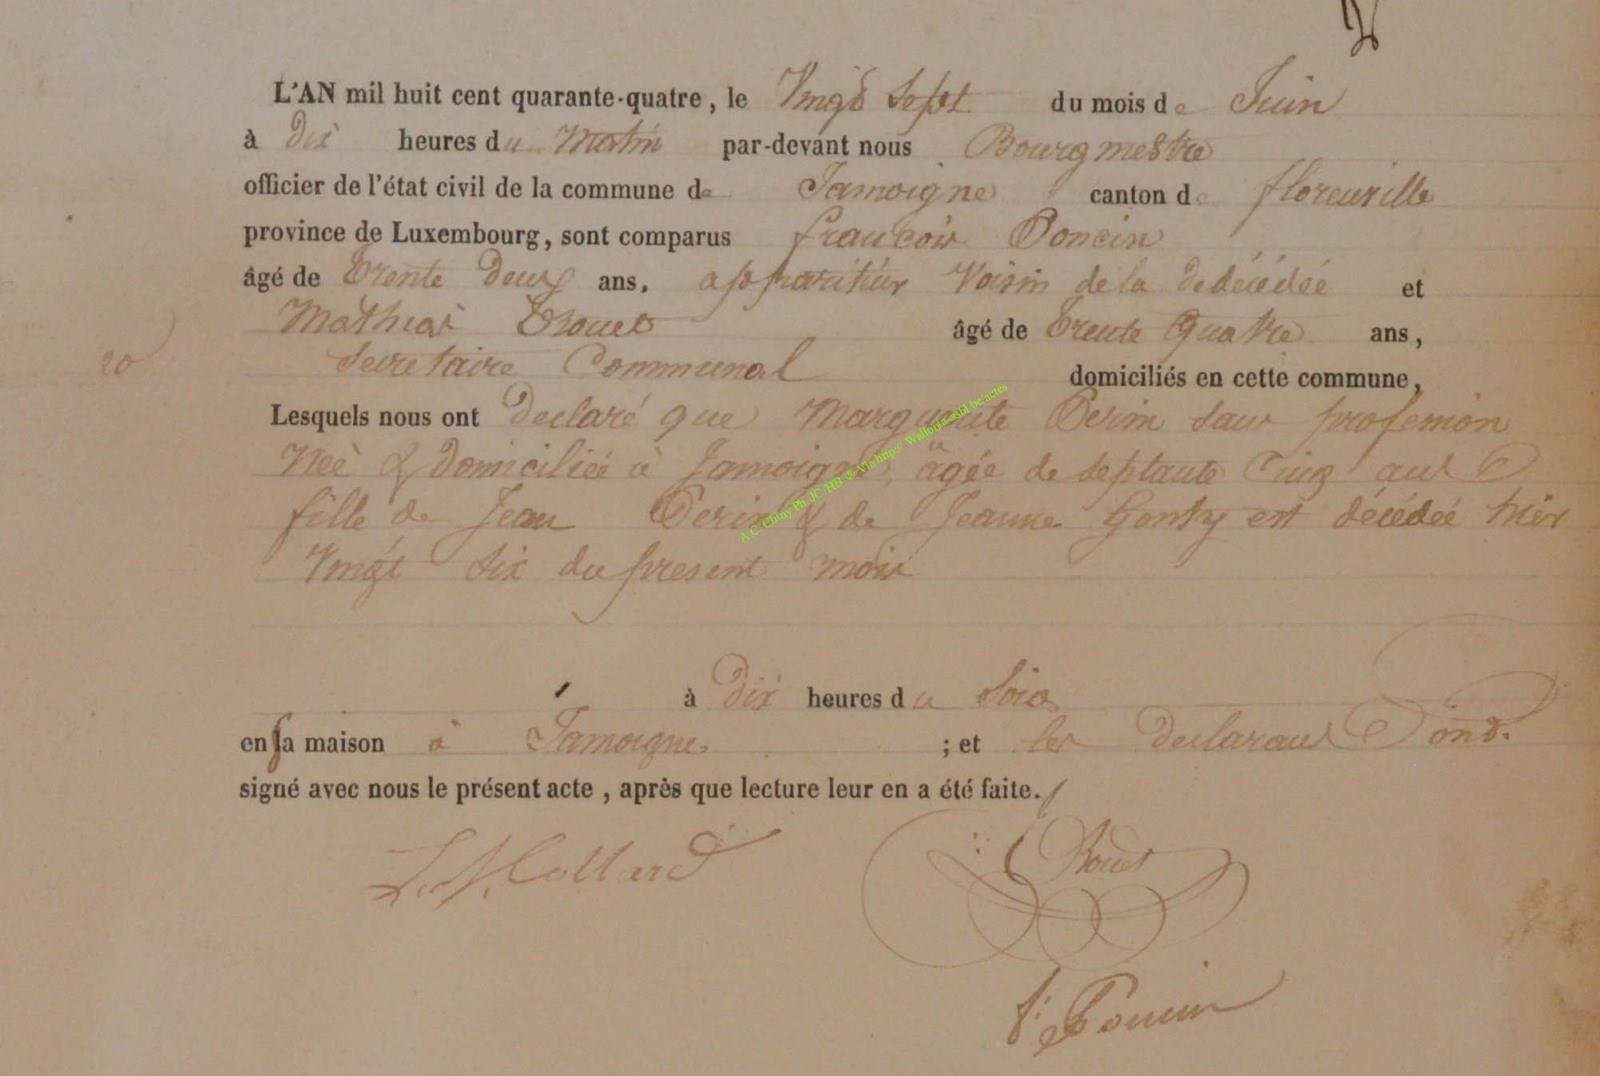 L'AN mil huit cent quarante-quatre, le Vingt Sept du mois de Juin
à Dix heures du Matin par-devant nous Bourgmestre
officier de l'état civil de la commune de Jamoigne canton de florenville
province de Luxembourg, sont comparus françois Poncin
âgé de trente Deux ans, appariteur Voisin de la dedécédée et
Mathias âgé de trente Quatre ans,
20 Secretaire Communal domiciliés en cette commune,
Lesquels nous ont declaré que Marguerite Perin sans profession
Neé & domiciliée à Jamoigne, âgée de septante Cinq ans
fille de Jean Perin & de Jeanne est décédée hier
Vingt Six du present mois
à Dix heures du Soir
en sa maison à Jamoigne ; et les declarans ond.
signé avec nous le présent acte, après que lecture leur en a été faite.
Collard
f. Poncin
A C-Chiny Ph. JC/HB